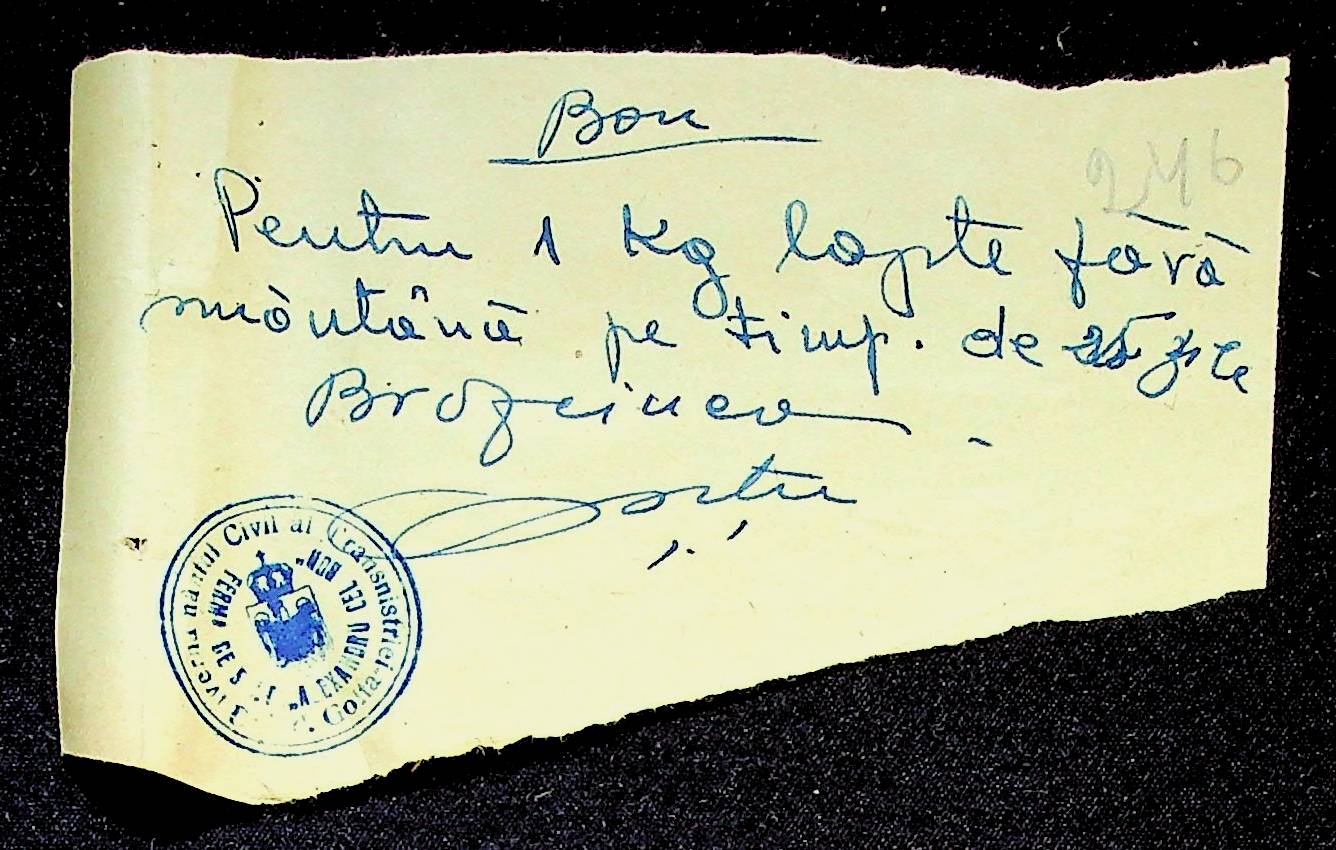 Bon
246
Pentru 1 Kg lapte fără
smântână pe timp. de 25 zile
Brozeinco
Guvernământul Civil al Transnistriei
Golta
FERMA DE STAT "ALEXANDRU CEL BUN"